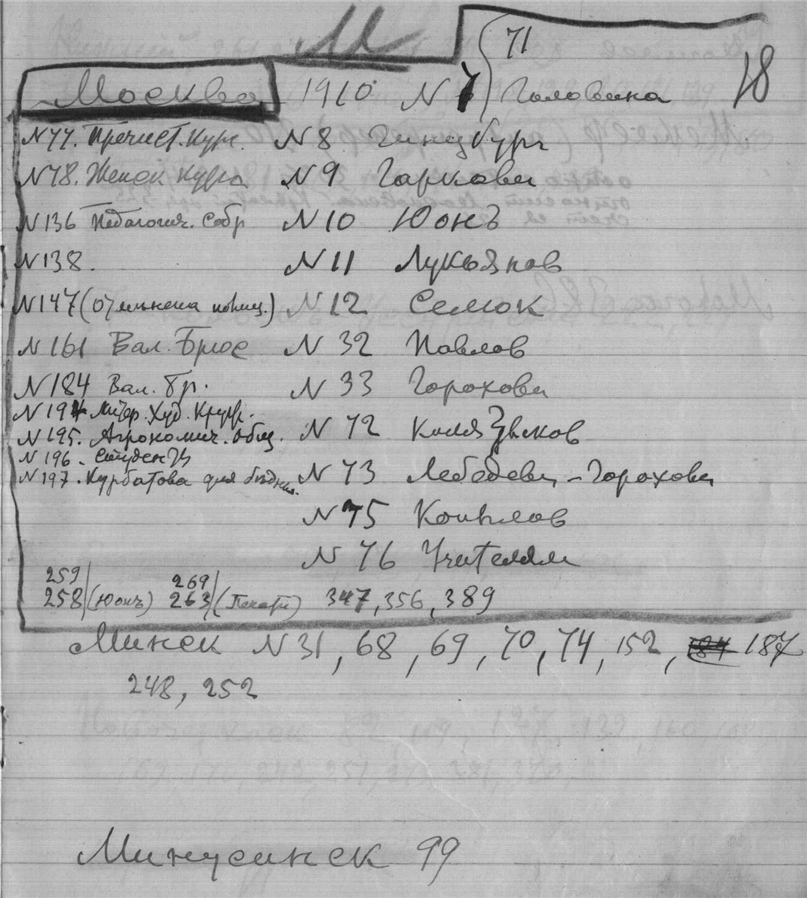 М
71
18
Москва 1910 N 7 Головина
N 77. Пречист. Курс. N 8 Гинцбург
N 78. Женск Курса N 9 Гаркави
N 136 Педагогич. Собр N 10 Юонъ
N 138. N 11 Лукьянов
N 147 (отменена полиц.) N 12 Семюк
N 161 Вал. Брюс N 32 Павлов
N 184 Вал. бр. N 33 Горохови
N 194 Литер. Худ. Круж.
N 195. Агрономич. общ. N 72 Калязыков
N 196. студен
N 197. Курбатова для N 73 Лебедеви - Горохови
N 75 Копылов
N 76 Учителям
259 269
258 (Юонъ) 263 347, 356, 389
Минск N 31, 68, 69, 70, 74, 152, 184 187
248, 252
Минусинск 99